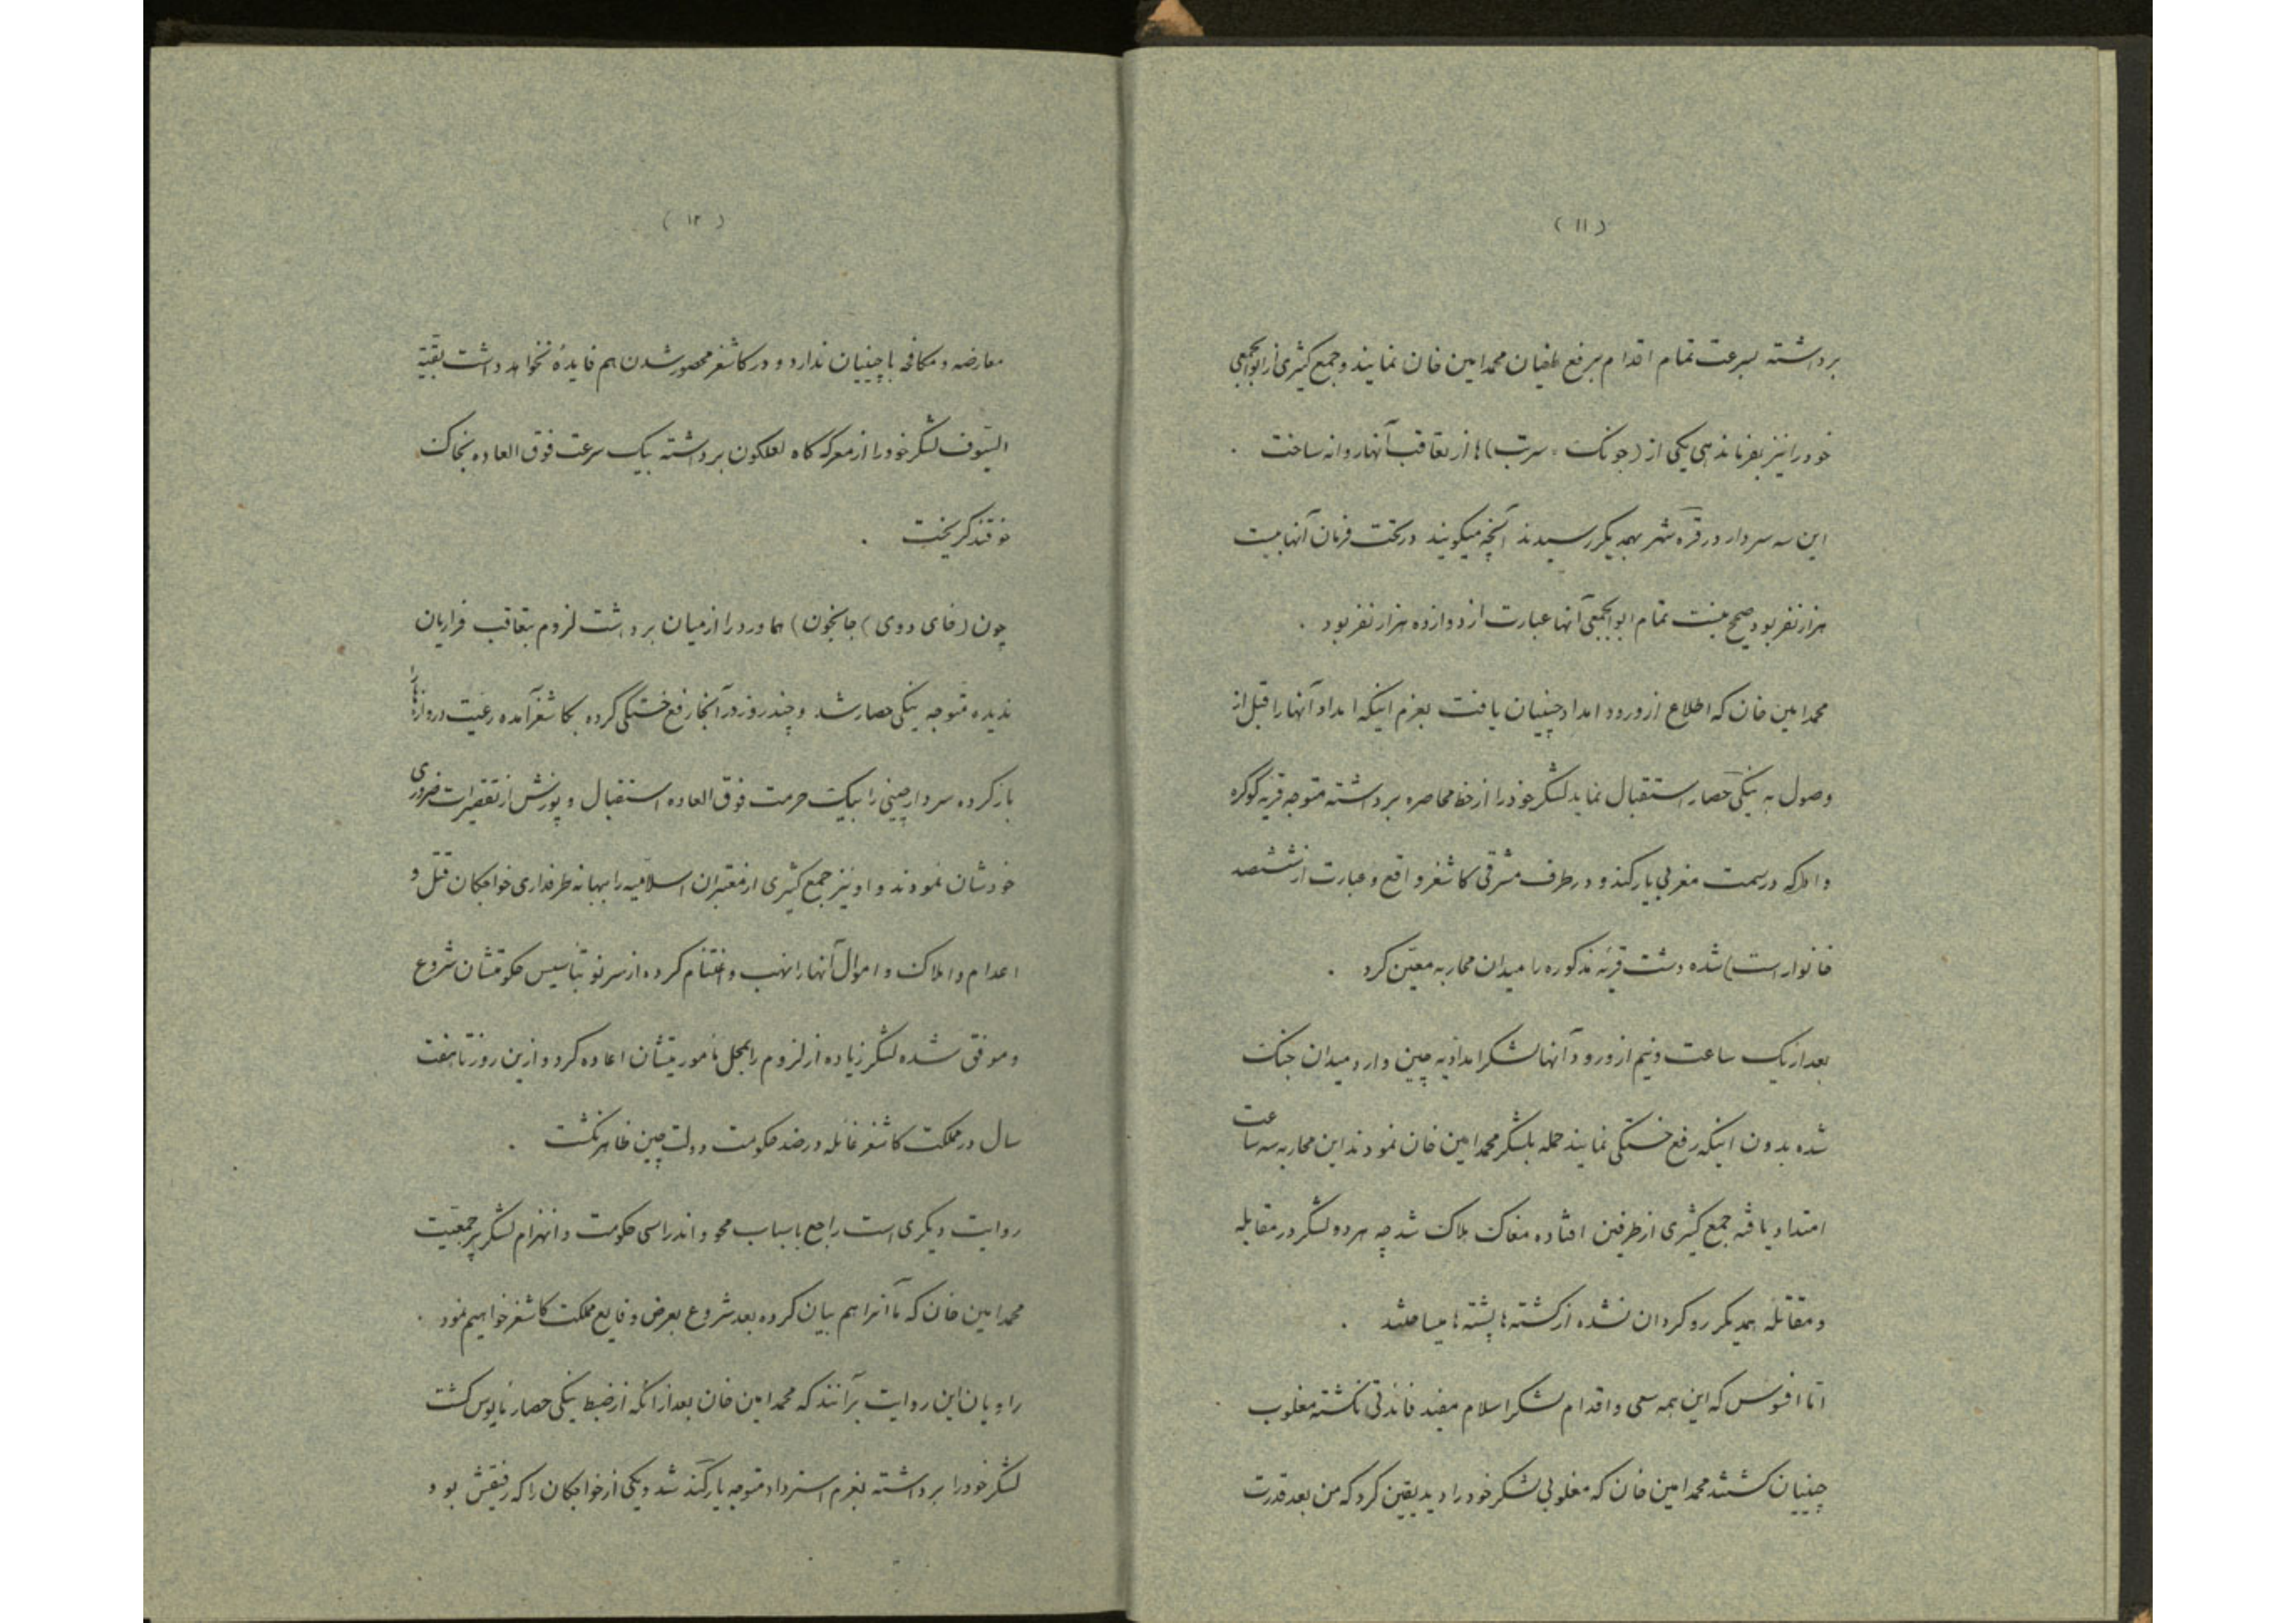 (١١)
برداشته بسرعت تمام اقدام برفع طغیان محمد امین خان نمایند و جمع کثیری از ابوابجمعی
خود را نیز بفرماندهی یکی از (جونک = سرتب) ها از تعاقب آنها روانه ساخت .
این سه سردار در قره شهر بهمدیکر رسیدند آنچه میکویند در تحت فرمان آنها بیست
هزار نفر بود صحیح نیست تمام ابوابجمعی آنها عبارت از دوازده هزار نفر بود .
محمد امین خان که اطلاع از ورود امداد چینیان یافت بعزم اینکه امداد آنها را قبل از
وصول به ینکی حصار استقبال نماید لشکر خود را از خط محاصره برداشته متوجه قریه کوکره
واطه که در سمت مغربی یارکند و در طرف مشرقی کاشغر واقع و عبارت از ششصد
خانوار است) شده دشت قریه مذکوره را میدان محاربه معین کرد .
بعد از یک ساعت و نیم از ورود آنها لشکر امدادیه چین وارد میدان جنک
شده بدون اینکه رفع خستکی نمایند حمله بلشکر محمد امین خان نمودند این محاربه سه ساعت
امتداد یافته جمع کثیری از طرفین افتاده مغاک هلاک شد چه هر دو لشکر در مقابله
و مقاتله همدیکر رو کردان نشده از کشته ها پشته ها میساختند .
اما افسوس که این همه سعی و اقدام لشکر اسلام مفید فائدتی نکشته مغلوب
چینیان کشتند محمد امین خان که مغلوبی لشکر خود را دید یقین کرد که من بعد قدرت
(١٢)
معارضه و مکافحه با چینیان ندارد و در کاشغر محصور شدن هم فایدهٔ نخواهد داشت بقیة
السیوف لشکر خود را از معرکه کاه لعلکون برداشته بیک سرعت فوق العاده بخاک
خوقند کریخت .
چون (خای دوی) جانجون) هماورد را از میان برداشت لزوم بتعاقب فراریان
ندیده متوجه ینکی حصار شد و چند روز در آنجا رفع خستکی کرده بکاشغر آمده رعیت دروازها را
باز کرده سردار چینی را بیک حرمت فوق العاده استقبال و پوزش از تقصیرات ضروری
خودشان نمودند و او نیز جمع کثیری از معتبران اسلامیه را ببهانه طرفداری خواجکان قتل و
اعدام و املاک و اموال آنها را نهب و اغتنام کرده از سر نو بتأسیس حکومتشان شروع
و موفق شده لشکر زیاده از لزوم را بمحل مأموریتشان اعاده کرد و ازین روز تا هفت
سال در مملکت کاشغر غائله در ضد حکومت دولت چین ظاهر نکشت .
روایت دیکری است راجع باسباب محو و اندراس حکومت و انهزام لشکر پر جمعیت
محمد امین خان که ما آنرا هم بیان کرده بعد شروع بعرض وقایع مملکت کاشغر خواهیم نمود .
راویان این روایت برآنند که محمد امین خان بعد از آنکه از ضبط ینکی حصار مأیوس کشت
لشکر خود را برداشته بعزم استرداد متوجه یارکند شد و یکی از خواجکان را که رفیقش بود